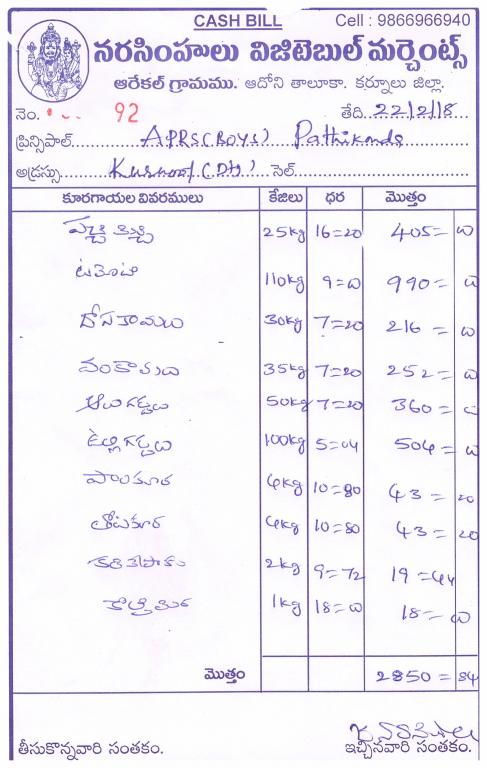 CASH BILL Cell : 9866966940
నరసింహులు విజిటెబుల్ మర్చెంట్స్
ఆరేకల్ గ్రామము. ఆదోని తాలూకా. కర్నూలు జిల్లా.
నెం. 92 తేది. 22/2/18
ప్రిన్సిపాల్ APRS (BOYS) Pathikonda
అడ్రస్సు Kurnool (Dt) సెల్
కూరగాయల వివరములు కేజీలు ధర మొత్తం
పచ్చి మిర్చి 25kg 16=20 405= ــ
టమోటా 110kg 9= 990=
దోసకాయలు 30kg 7=20 216 =
వంకాయలు 35kg 7=20 252=
ఆలుగడ్డలు 50kg 7=20 360 =
ఉల్లిగడ్డలు 100kg 5=04 504 =
పాలకూర 4kg 10=80 43 = 20
తోటకూర 4kg 10=80 43 = 20
కరివేపాకు 2kg 9=72 19 =44
కొత్తిమీర 1kg 18= 18=
మొత్తం 2850 = 84
తీసుకొన్నవారి సంతకం. ఇచ్చినవారి సంతకం.